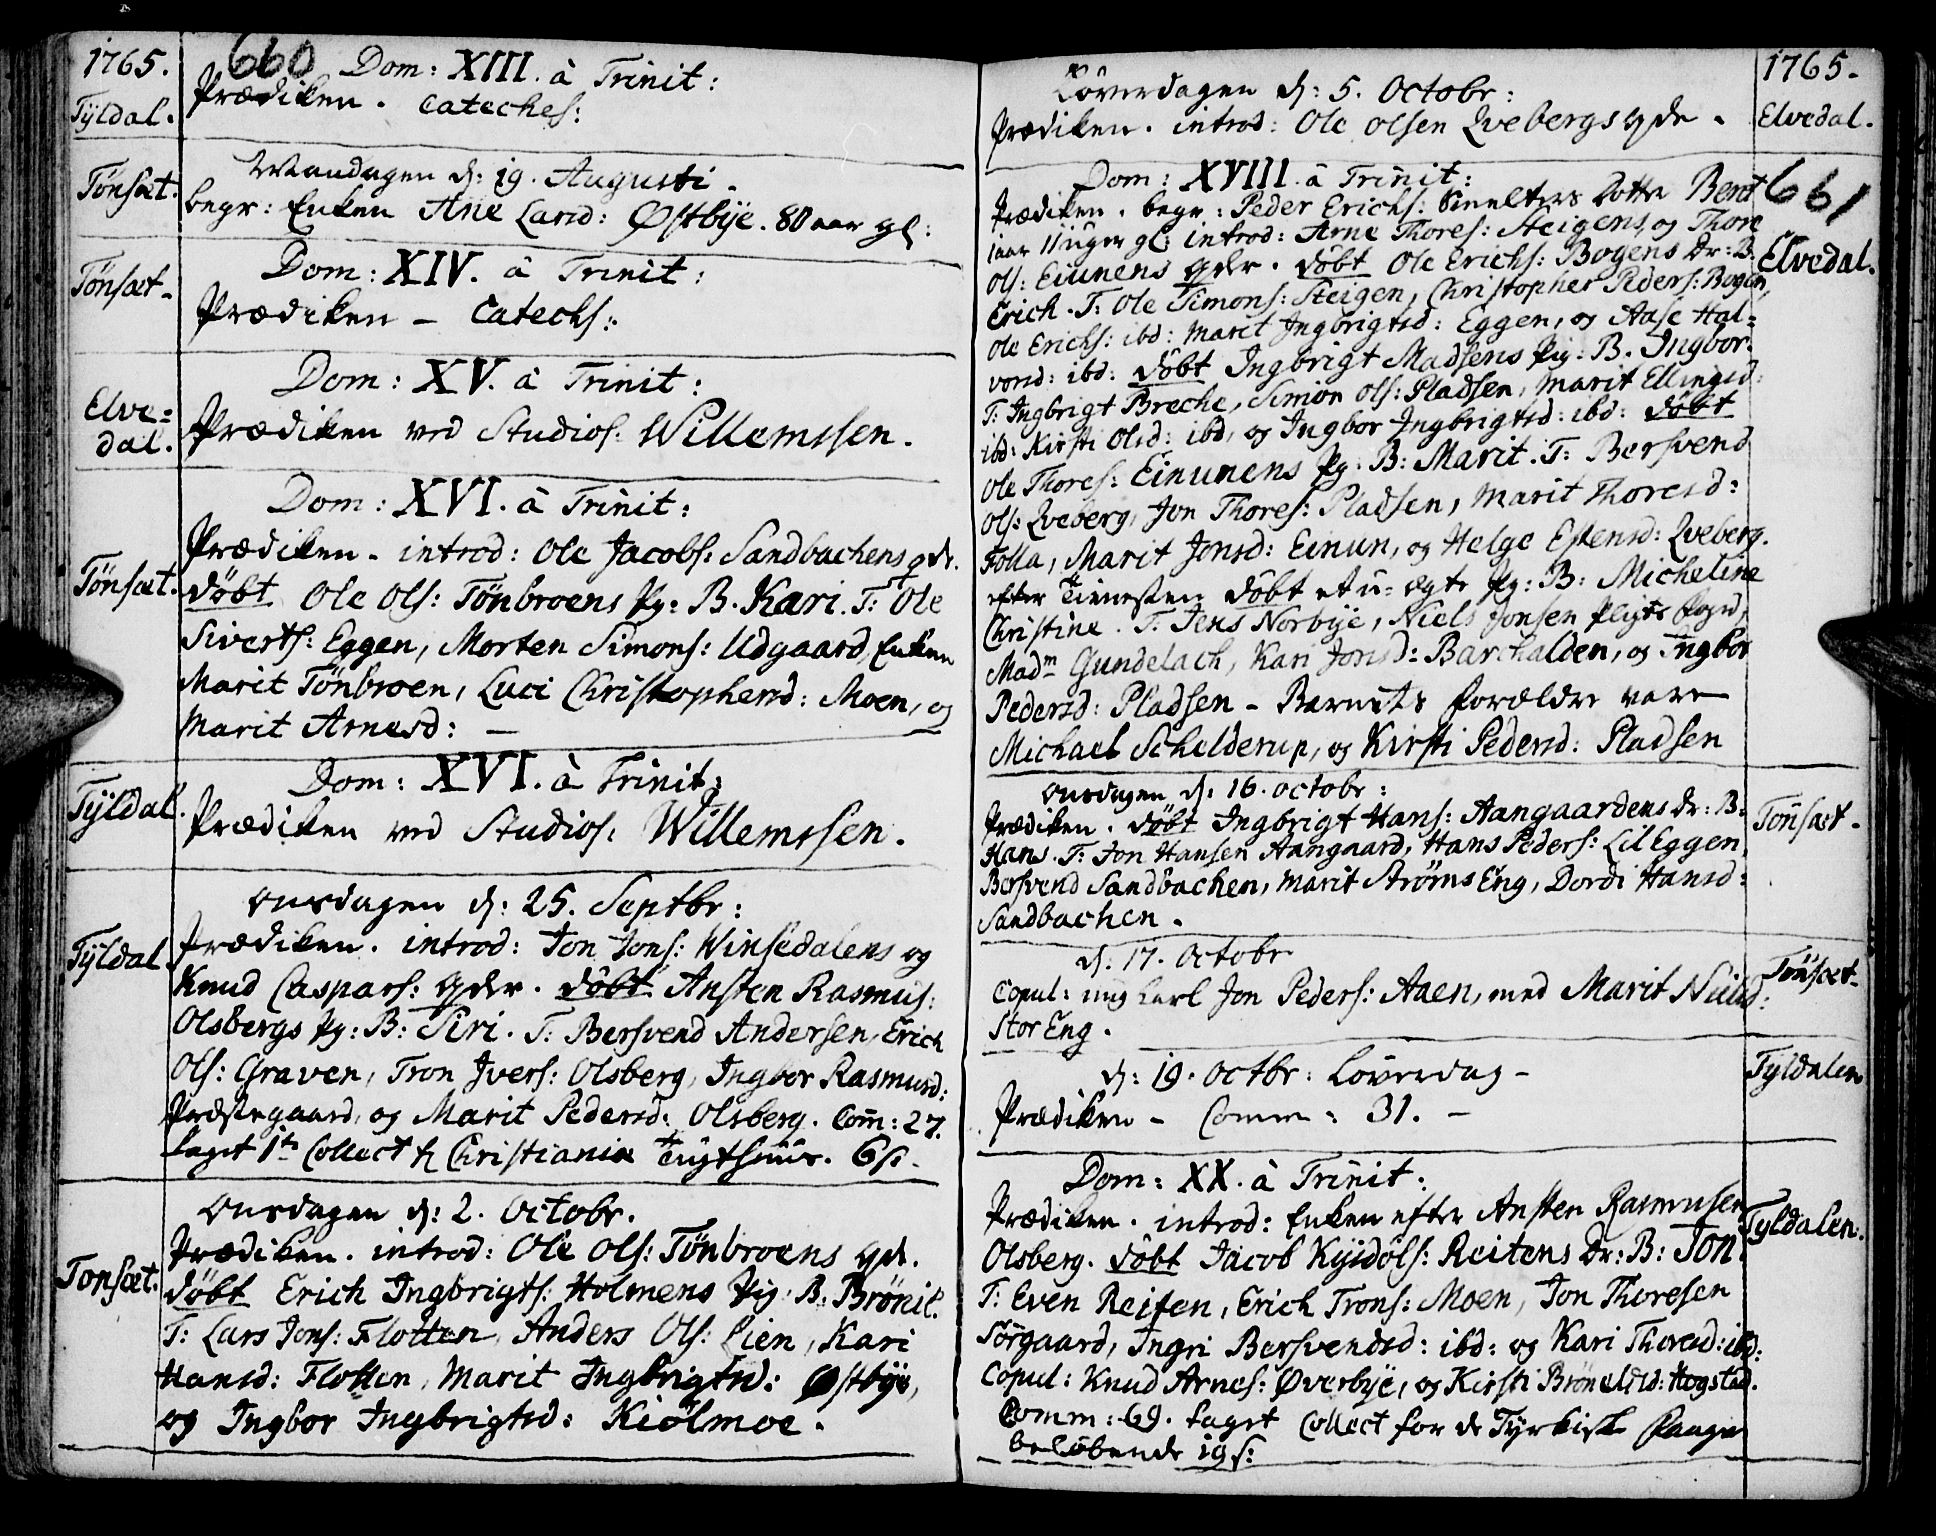 1765.
660
Dom: XIII. à Trinit:
Tÿldal.
Prædiken. Catechef:
Maandagen d: 19. Augusti.
Tönsæt.
begr: Enken Ane Larsd: Østbÿe. 80 aar gl:
Dom: XIV. à Trinit:
Tönsæt.
Prædiken – Catechs:
Dom: XV. à Trinit:
Elve=
dal.
Prædiken ved Studios: Willemssen.
Dom: XVI. à Trinit:
Prædiken – introd: Ole Jacobs: Sandbachens qde.
Tönsæt.
döbt Ole Ols: Tönbroens pg: B. Kari. T: Ole
Siverts: Eggen, Morten Simons: Udgaard, Enken
Marit Tönbroen, Luci Christophersd: Moen, og
Marit Arnesd: –
Dom: XVI. à Trinit:
Tÿldal.
Prædiken ved Studios: Willemssen.
Onsdagen d: 25. Septbr:
Tÿldal
Prædiken. introd: Jon Jons: Winsedalens og
Knud Caspars: qder. döbt Ansten Rasmus:
Olsbergs pg: B: Siri. T: Bersvend Andersen, Erich
Ols: Graven, Tron Jvers: Olsberg, Ingbor Rasmusd:
Præstegaard, og Marit Pedersd: Olsberg. Com: 27.
Laget 1te Collect t Christiania Tugthuus. 6 s.
Onsdagen d: 2. Octobr.
Prædiken. introd: Ole Ols: Tönbroens qde.
Tonsæt.
döbt Erich Ingbrigts: Holmens pig: B. Brönil.
T: Lars Jons: Flotten, Anders Ols: Lien, Kari
Hansd: Flotten, Marit Ingbrigtsd: Østbye,
og Ingbor Ingbrigtsd: Kiölmoe.
Löverdagen d: 5. Octobr:
1765.
Prædiken. introd: Ole Olsen Qvebergs qde.
Elvedal.
Dom: XVIII. à Trinit:
661
Prædiken. begr: Peder Erichs: Smelters Dotter Berit
1 aar 11 uger gl: introd: Arne Thores: Steigens, og Thore
Elvedal.
Ols: Eiunens qder. döbt Ole Erichs: Bogens Dr: B.
Erich. T: Ole Simons: Steigen, Christopher Peders: Bogen,
Ole Erichs: ibd: Marit Ingbrigtsd: Eggen, og Aase Hal=
vorsd: ibd: döbt Ingbrigt Madsens pig: B. Ingbor.
T: Ingbrigt Breche, Simon Ols: Pladsen, Marit Ellingsd:
ibd: Kirsti Olsd: ibd, og Ingbor Ingbrigtsd: ibd: döbt
Ole Thores: Einunens pg: B: Marit. T: Bersvend
Ols: Qveberg, Jon Thores: Pladsen, Marit Thoresd:
Folla, Marit Jonsd: Einun, og Helge Estensd: Qveberg.
efter Tienesten döbt et u=ægte pg: B: Micheline
Christine. T: Jens Norbÿe, Niels Jonsen
Madm Gundelach, Kari Jonsd: Barchalden, og Ingbor
Pedersd: Pladsen – Barnets forældre vare
Michael Schelderup, og Kirsti Pedersd: Pladsen
Onsdagen d: 16. octobr:
Prædiken. döbt Ingbrigt Hans: Aangaardens Dr: B:
Tönsæt.
Hans. T: Jon Hansen Aangaard, Hans Peders: Lil Eggen,
Bersvend Sandbachen, Marit Ströms Eng, Dordi Hansd:
Sandbachen.
d: 17. Octobr
Tönsæt.
Copul: ung karl Jon Peders: Aaen, med Marit Nilsd:
Stor Eng.
d: 19. Octbr: Löverdag –
Tÿldalen
Prædiken – Comm: 31. –
Dom: XX. à Trinit:
Prædiken. introd: Enken efter Ansten Rasmusen
Tÿldalen.
Olsberg. döbt Jacob Kjstols: Reitens Dr: B: Jon.
T: Even Reiten, Erich Trons: Moen, Jon Thoresen
Sörgaard, Ingri Bersvendsd: ibd: og Kari Thoresd: ibd:
Copul: Knud Arnes: Överbÿe, og Kirsti Brönelsd: Hogstad.
Comm: 69. Laget Collect for de Tyrkiske fanger
belöbende 19 s: